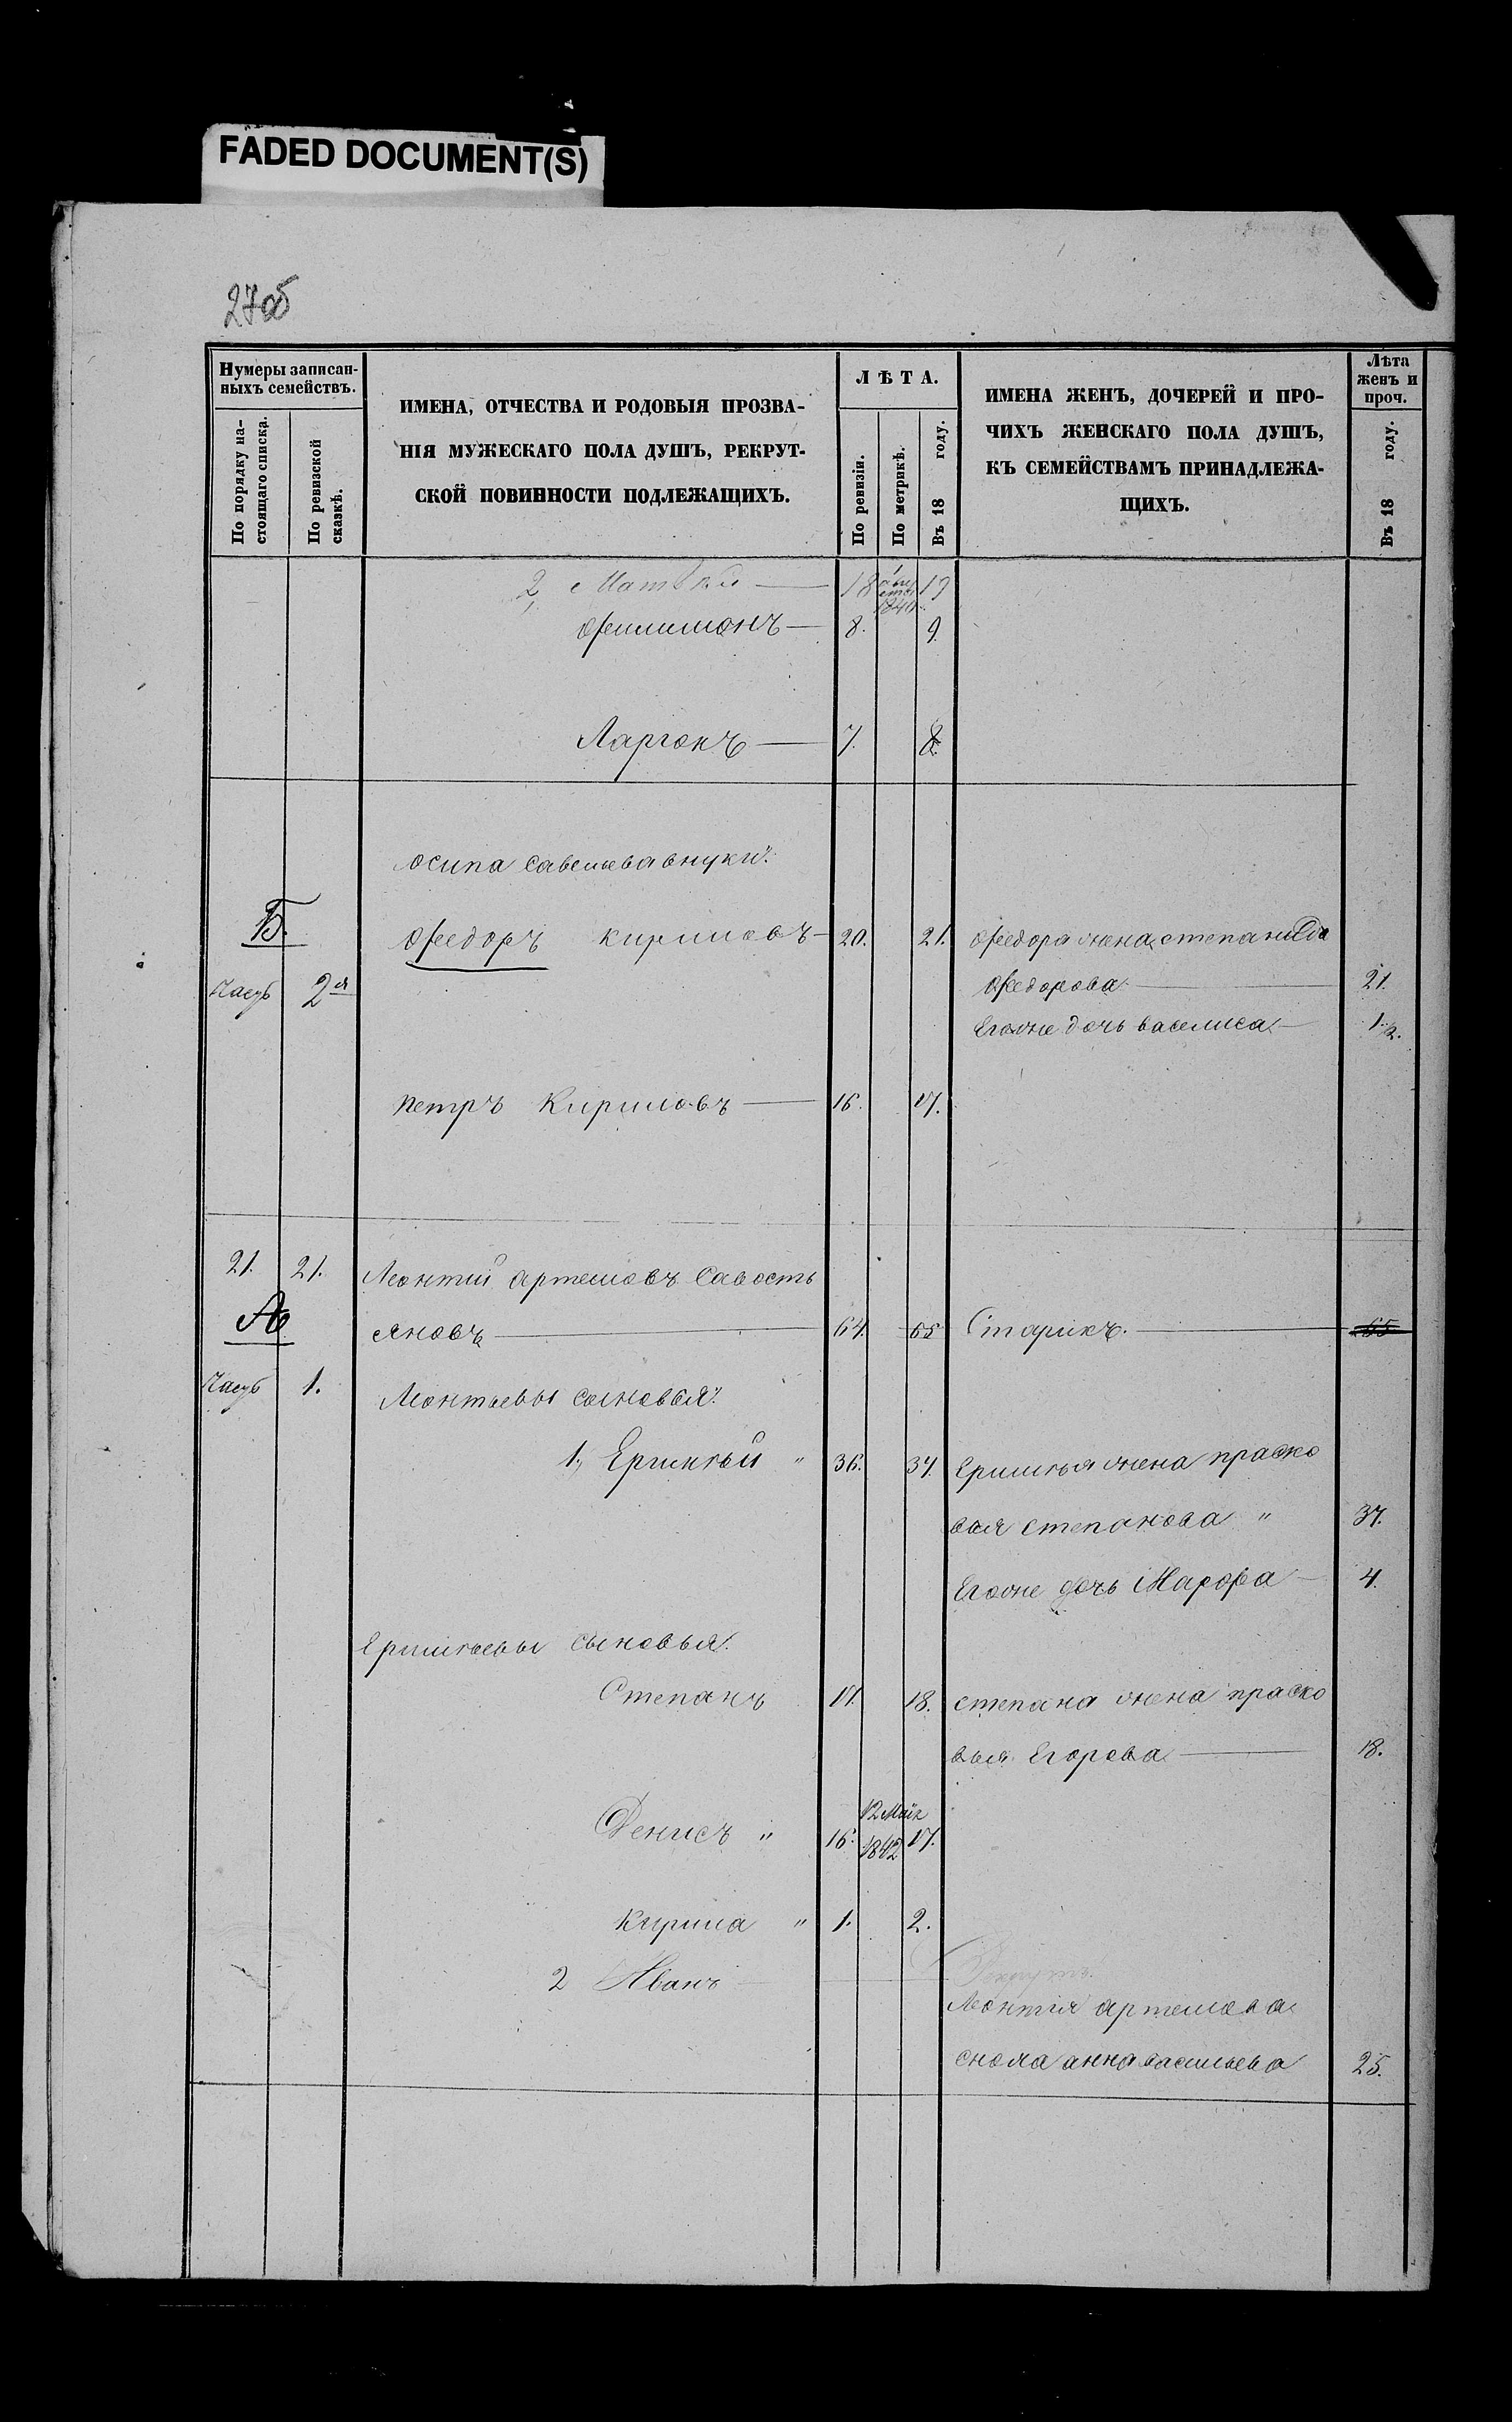 FADED DOCUMENT(S)
27об
Нумеры записан-
ныхъ семействъ.
По порядку на-
стоящаго списка.
По ревизской
сказкѣ.
ИМЕНА, ОТЧЕСТВА И РОДОВЫЯ ПРОЗВА-
НІЯ МУЖЕСКАГО ПОЛА ДУШЪ, РЕКРУТ-
СКОЙ ПОВИННОСТИ ПОДЛЕЖАЩИХЪ.
ЛѢТА.
По ревизіи.
По метрикѣ.
Въ 18 году.
ИМЕНА ЖЕНЪ, ДОЧЕРЕЙ И ПРО-
ЧИХЪ ЖЕНСКАГО ПОЛА ДУШЪ,
КЪ СЕМЕЙСТВАМЪ ПРИНАДЛЕЖА-
ЩИХЪ.
Лѣта
женъ и
проч.
Въ 18 году.
2, Матвѣй — 18 19
Филимонъ — 8. 9.
Ларионъ — 7. 8.
осипа савельева внуки:
Б. Федоръ кириловъ — 20. 21. Федора жена степанида
Часть 2я Федорова — 21.
Егоже дочь василиса — 1/2.
петръ Кириловъ — 16. 17.
21. 21. Леонтий артемовъ Савость
А яновъ — 64. 65 Старикъ. — 65
Часть 1. Леонтьевы сыновья:
1, Ермилъ " 36. 37. Ермилъя жена праско
вья степанова " 37.
Егоже дочь Марфа — 4.
Ермилъевы сыновья.
Степанъ 17. 18. степана жена праско
вья Егорова — 18.
12 Мая
Денисъ " 16. 1842 17.
Кирила " 1. 2.
2 Иванъ
Леонтия артемова
сноха анна васильева 25.